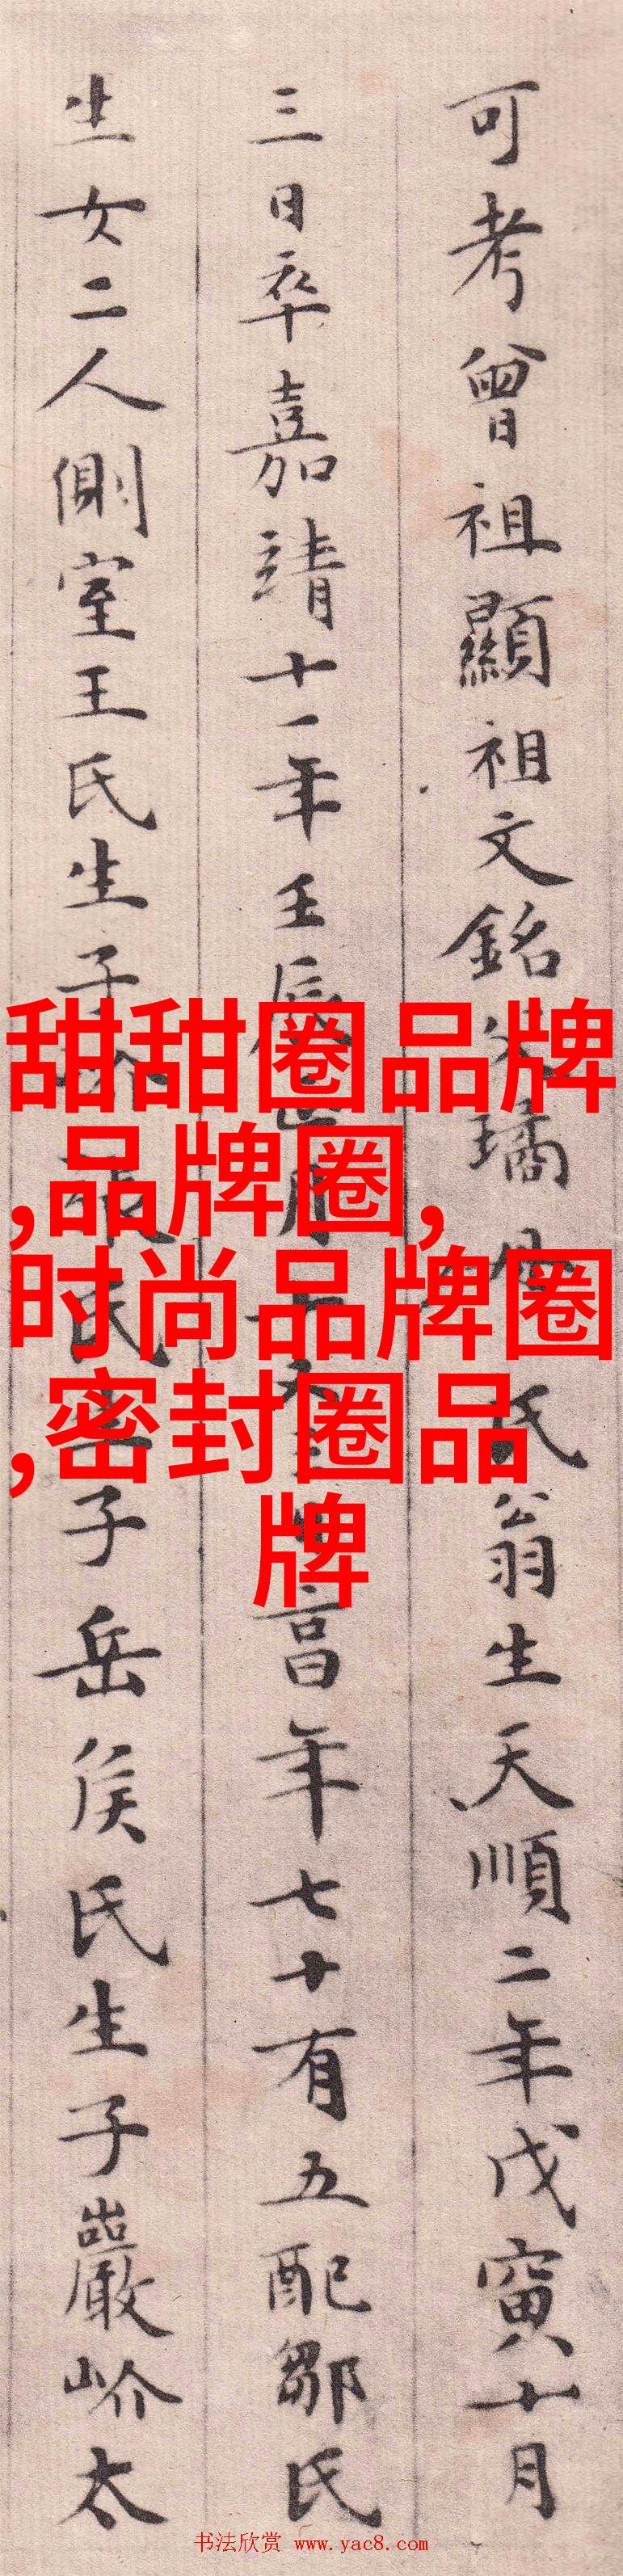 可考曾祖顯祖文銘父璚母氏翁生天順二年戊寅十月
三日卒嘉靖十一年壬辰月年七十有五配鄒氏
生女二人側室王氏生子氏子岳侯氏生子巖岕太
甜甜圈品牌
,品牌圈,
时尚品牌圈
,密封圈品
牌
书法欣赏 www.yac8.com